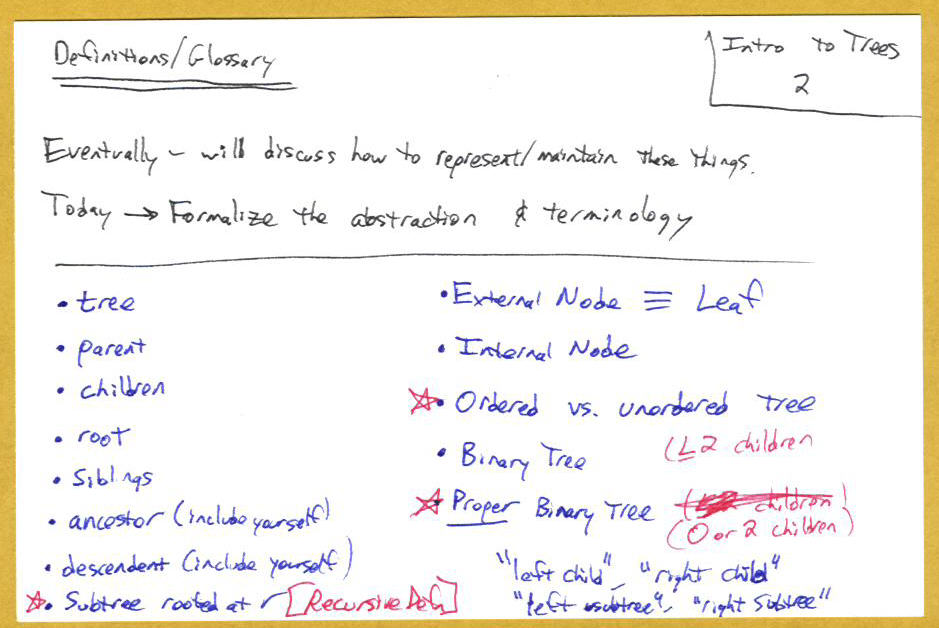 Definitions/Glossary
Intro to Trees
2
Eventually - will discuss how to represent/maintain these things.
Today → Formalize the abstraction & terminology
• tree
• parent
• children
• root
• Siblings
• ancestor (include yourself)
• descendent (include yourself)
☆• Subtree rooted at r [Recursive Defn]
• External Node ≡ Leaf
• Internal Node
☆• Ordered vs. unordered Tree
• Binary Tree (≤ 2 children
☆• Proper Binary Tree ( children)
(0 or 2 children)
"left child", "right child"
"left subtree", "right subtree"